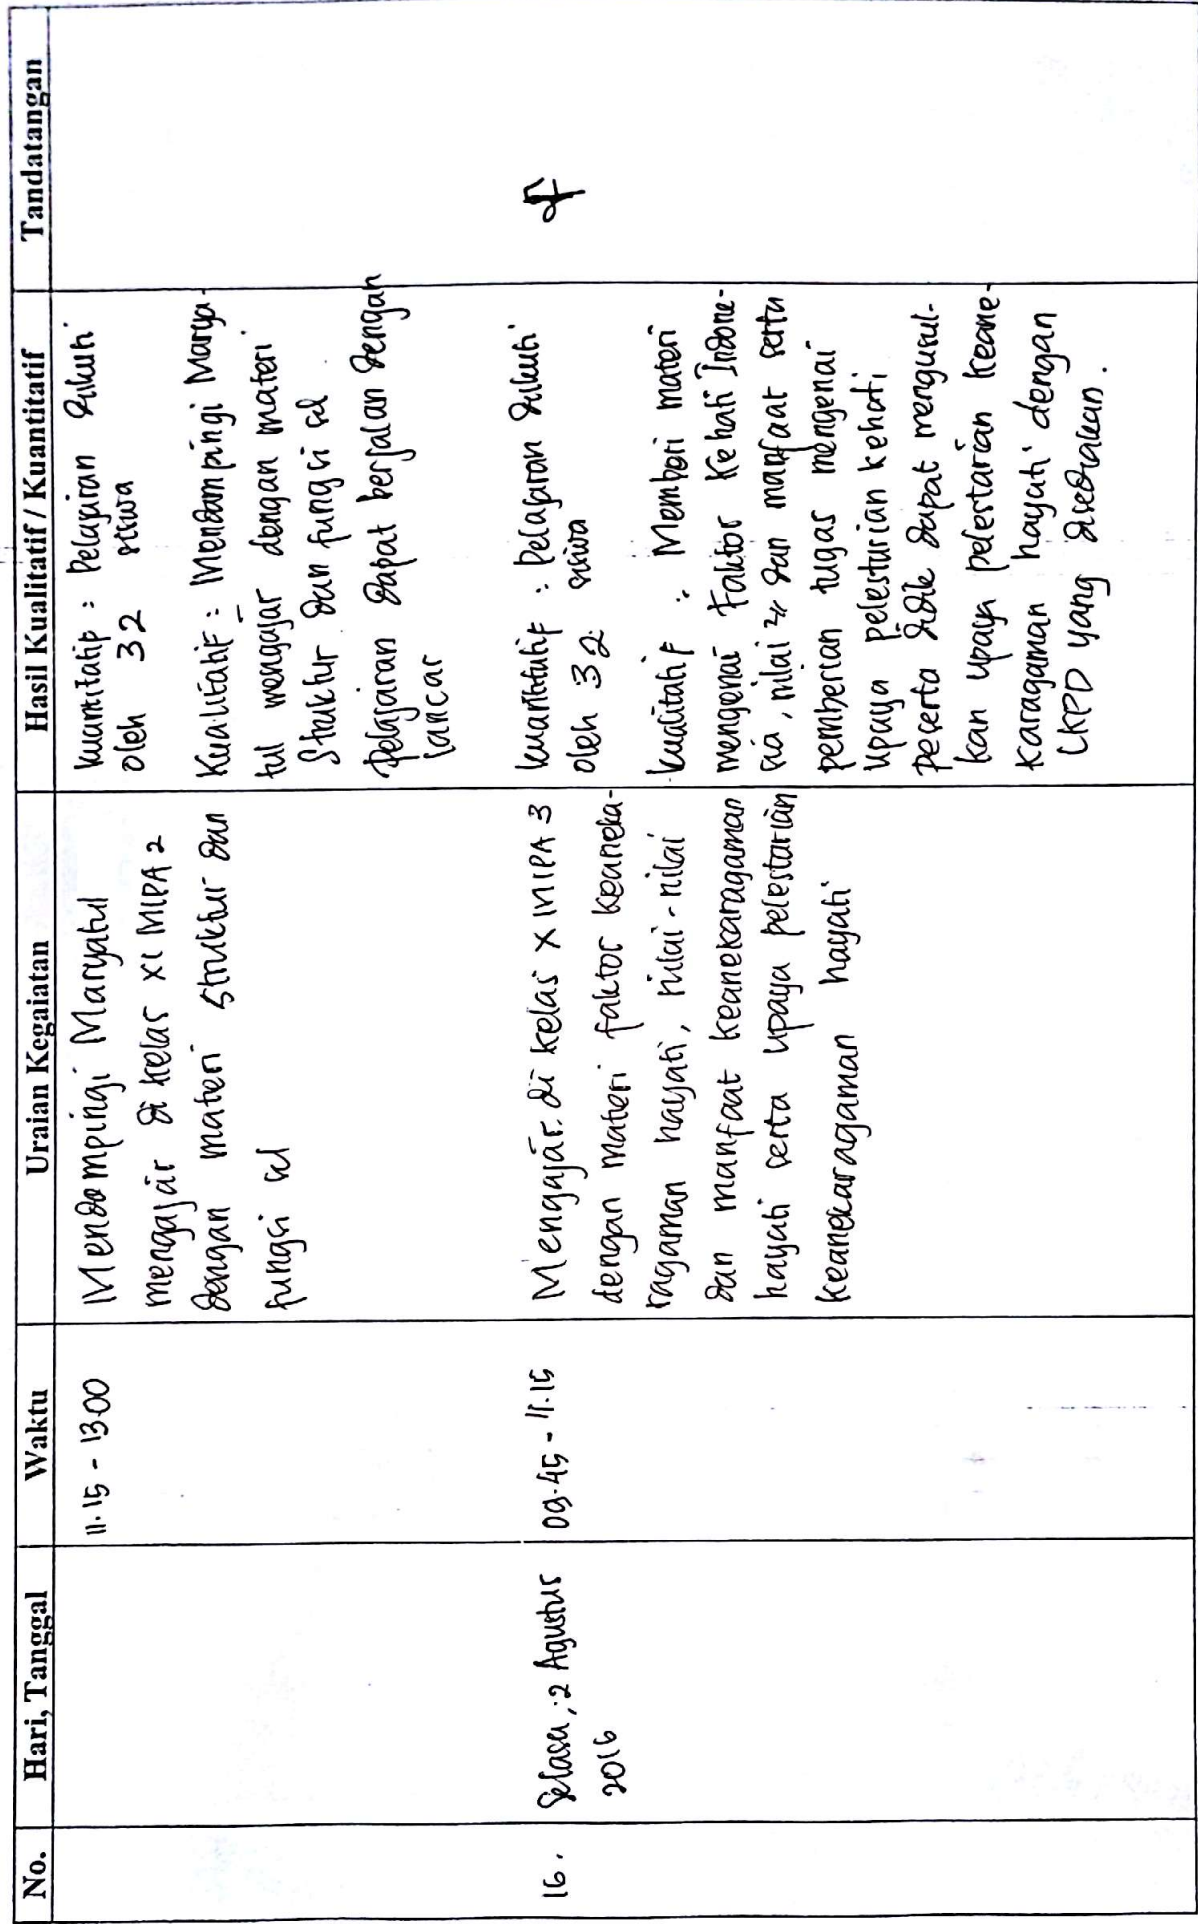 No. Hari, Tanggal Waktu Uraian Kegaiatan Hasil Kualitatif / Kuantitatif Tandatangan
11.15 - 13.00
Mendampingi Maryatul
mengajar di kelas XI MIPA 2
dengan materi struktur dan
fungsi sel
kuantitatif : Pelajaran diikuti
oleh 32 siswa
Kualitatif : Mendampingi Marya-
tul mengajar dengan materi
Struktur dan fungsi sel
Pelajaran dapat berjalan dengan
lancar
16.
Selasa, 2 Agustus
2016
09.45 - 11.15
Mengajar di kelas X MIPA 3
dengan materi faktor keaneka-
ragaman hayati, nilai-nilai
dan manfaat keanekaragaman
hayati serta upaya pelestarian
keanekaragaman hayati
kuantitatif : Pelajaran diikuti
oleh 32 siswa
kualitatif : Memberi materi
mengenai Faktor Kehati Indone-
sia, nilai2 dan manfaat serta
pemberian tugas mengenai
upaya pelestarian kehati
peserta didik dapat mengusul-
kan upaya pelestarian keane-
karagaman hayati dengan
LKPD yang disediakan.